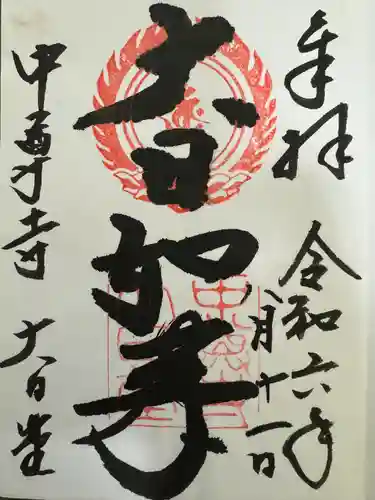 奉拝
令和六年
八月十一日
大日
如来
中尊寺 大日堂